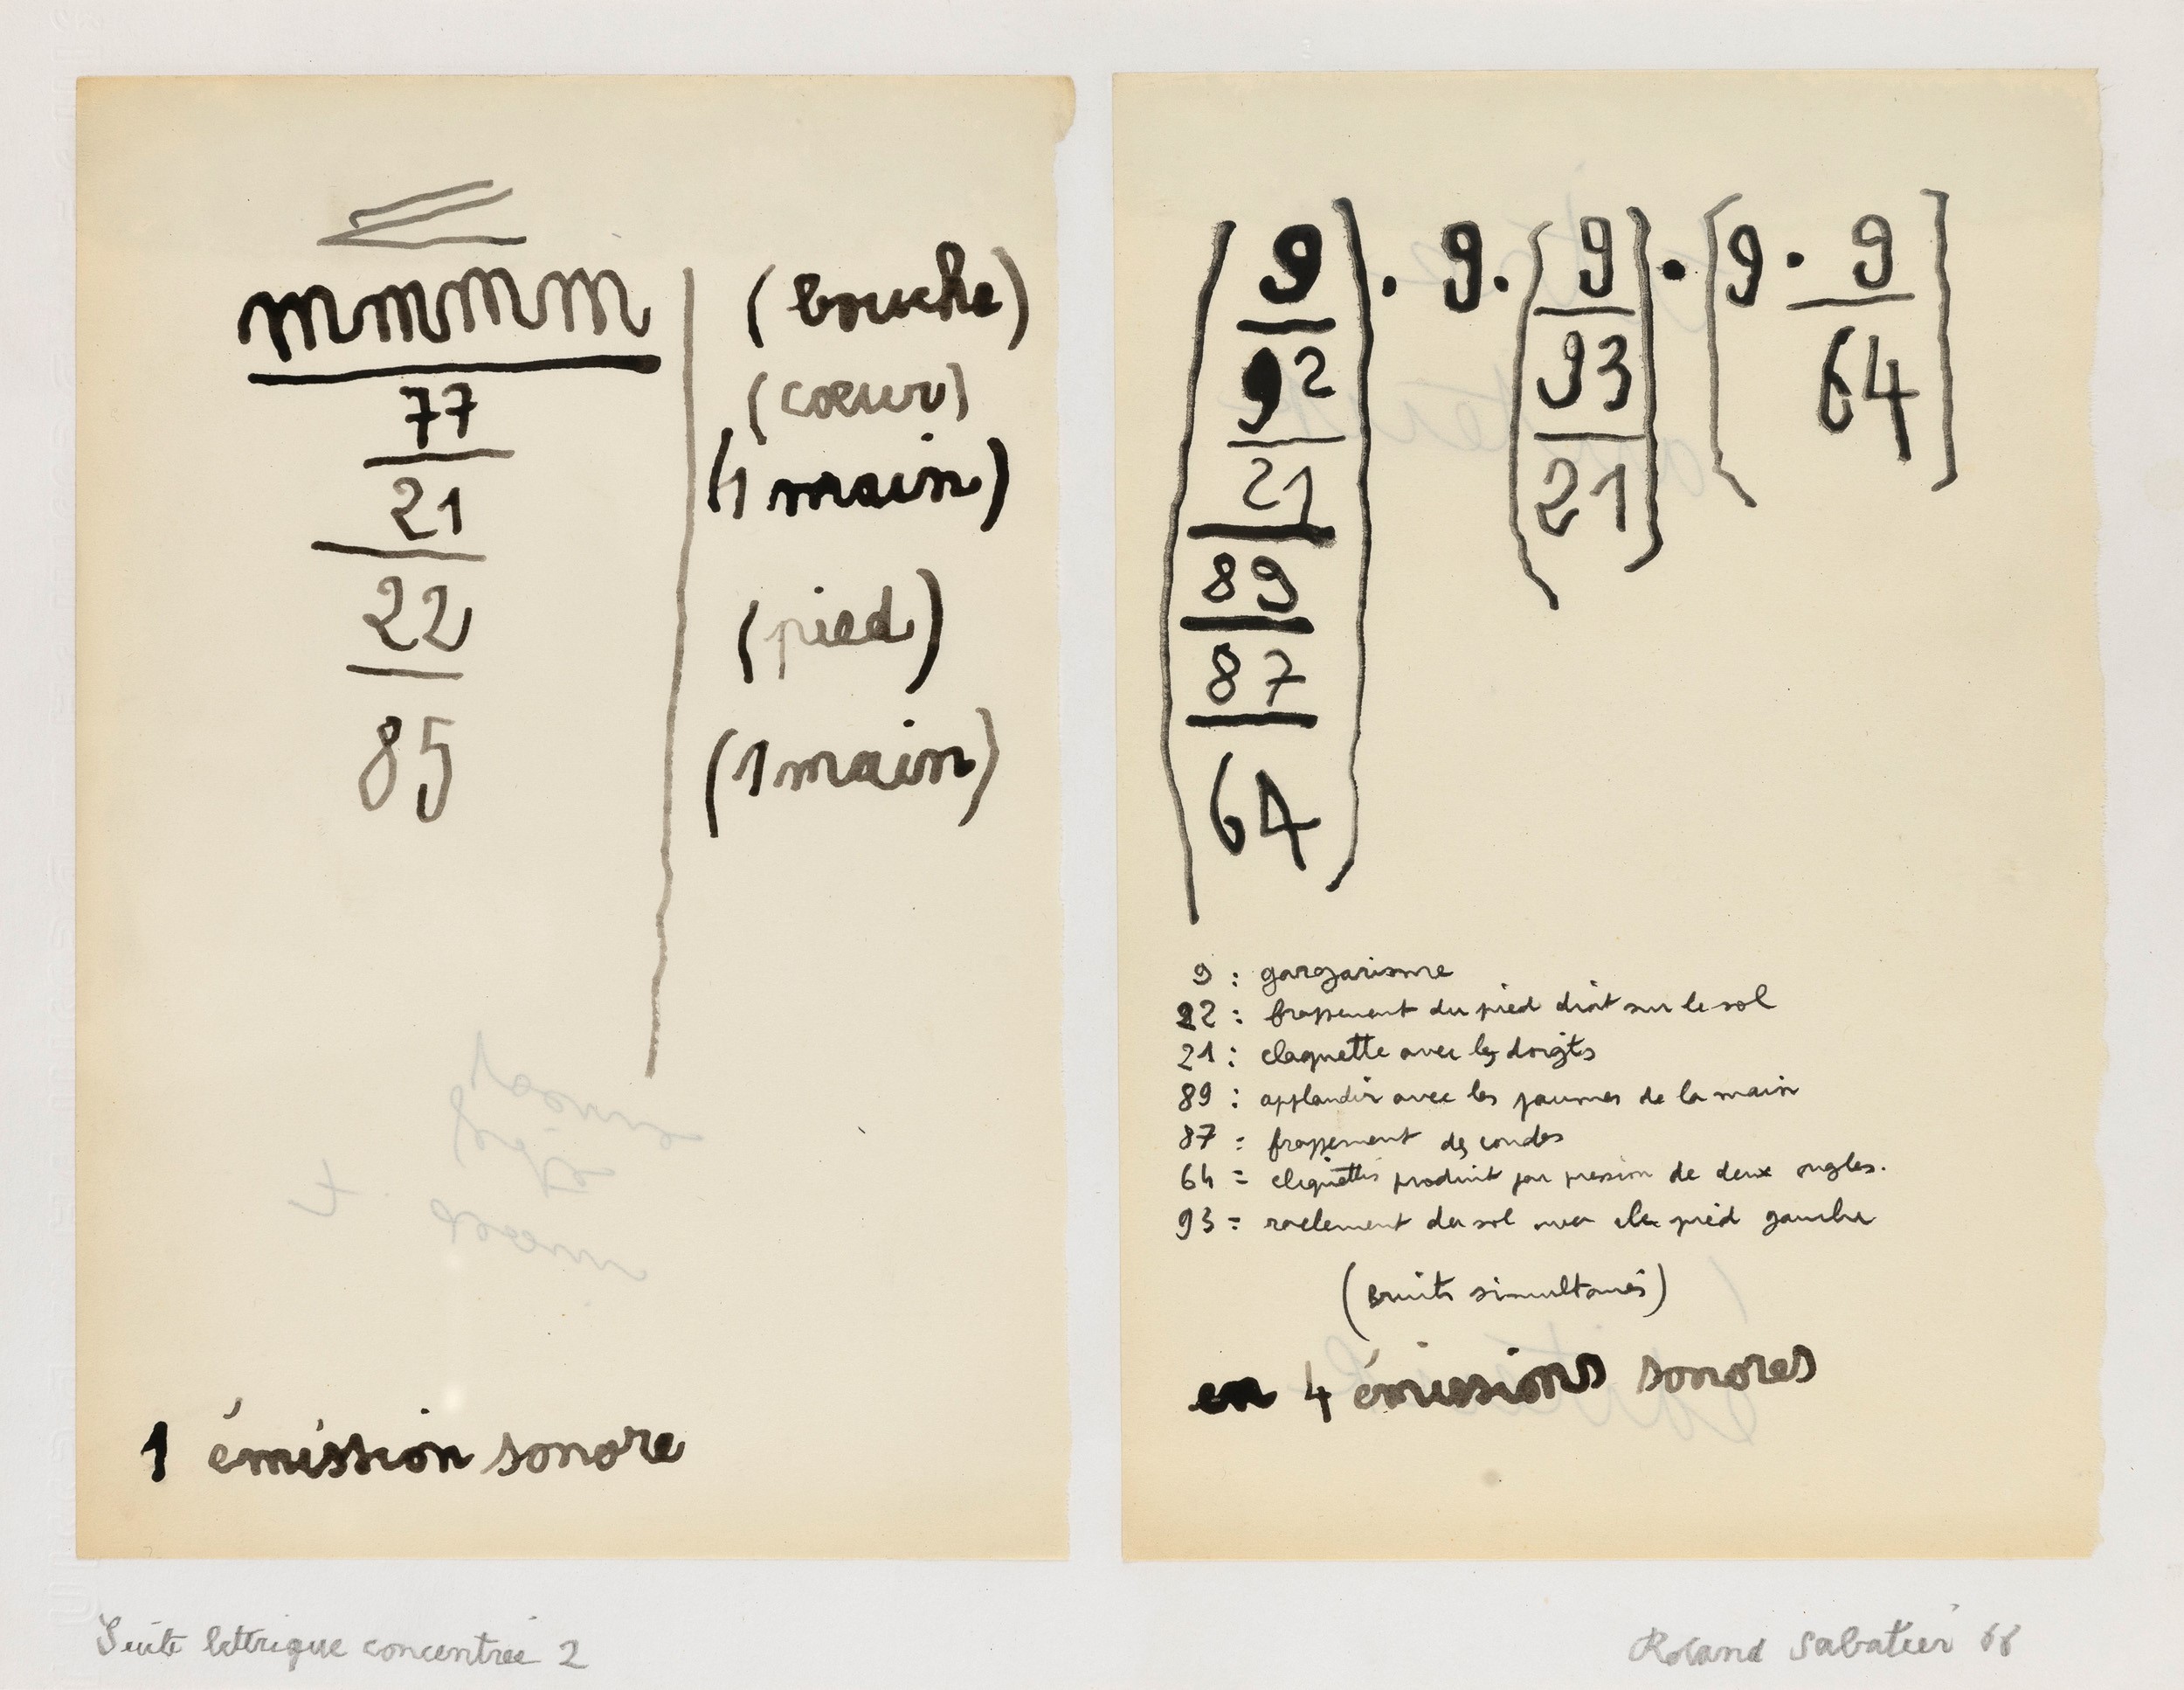 mmmm (bouche)
77 (coeur)
21 (1 main)
22 (pied)
85 (1 main)
1 émission sonore
(9 ) . 9 . (9 ) . (9 . 9)
92 93 64
21 21
89
87
64
9 : gargarisme
22 : frapement du pied droit sur le sol
21 : claquette avec les doigts
89 : applaudir avec les paumes de la main
87 = frappement des coudes
64 = cliquettis produit par pression de deux ongles.
93 = raclement du sol avec le pied gauche
(Bruits simultanés)
en 4 émissions sonores
Suite lettrique concentrée 2
Roland Sabatier